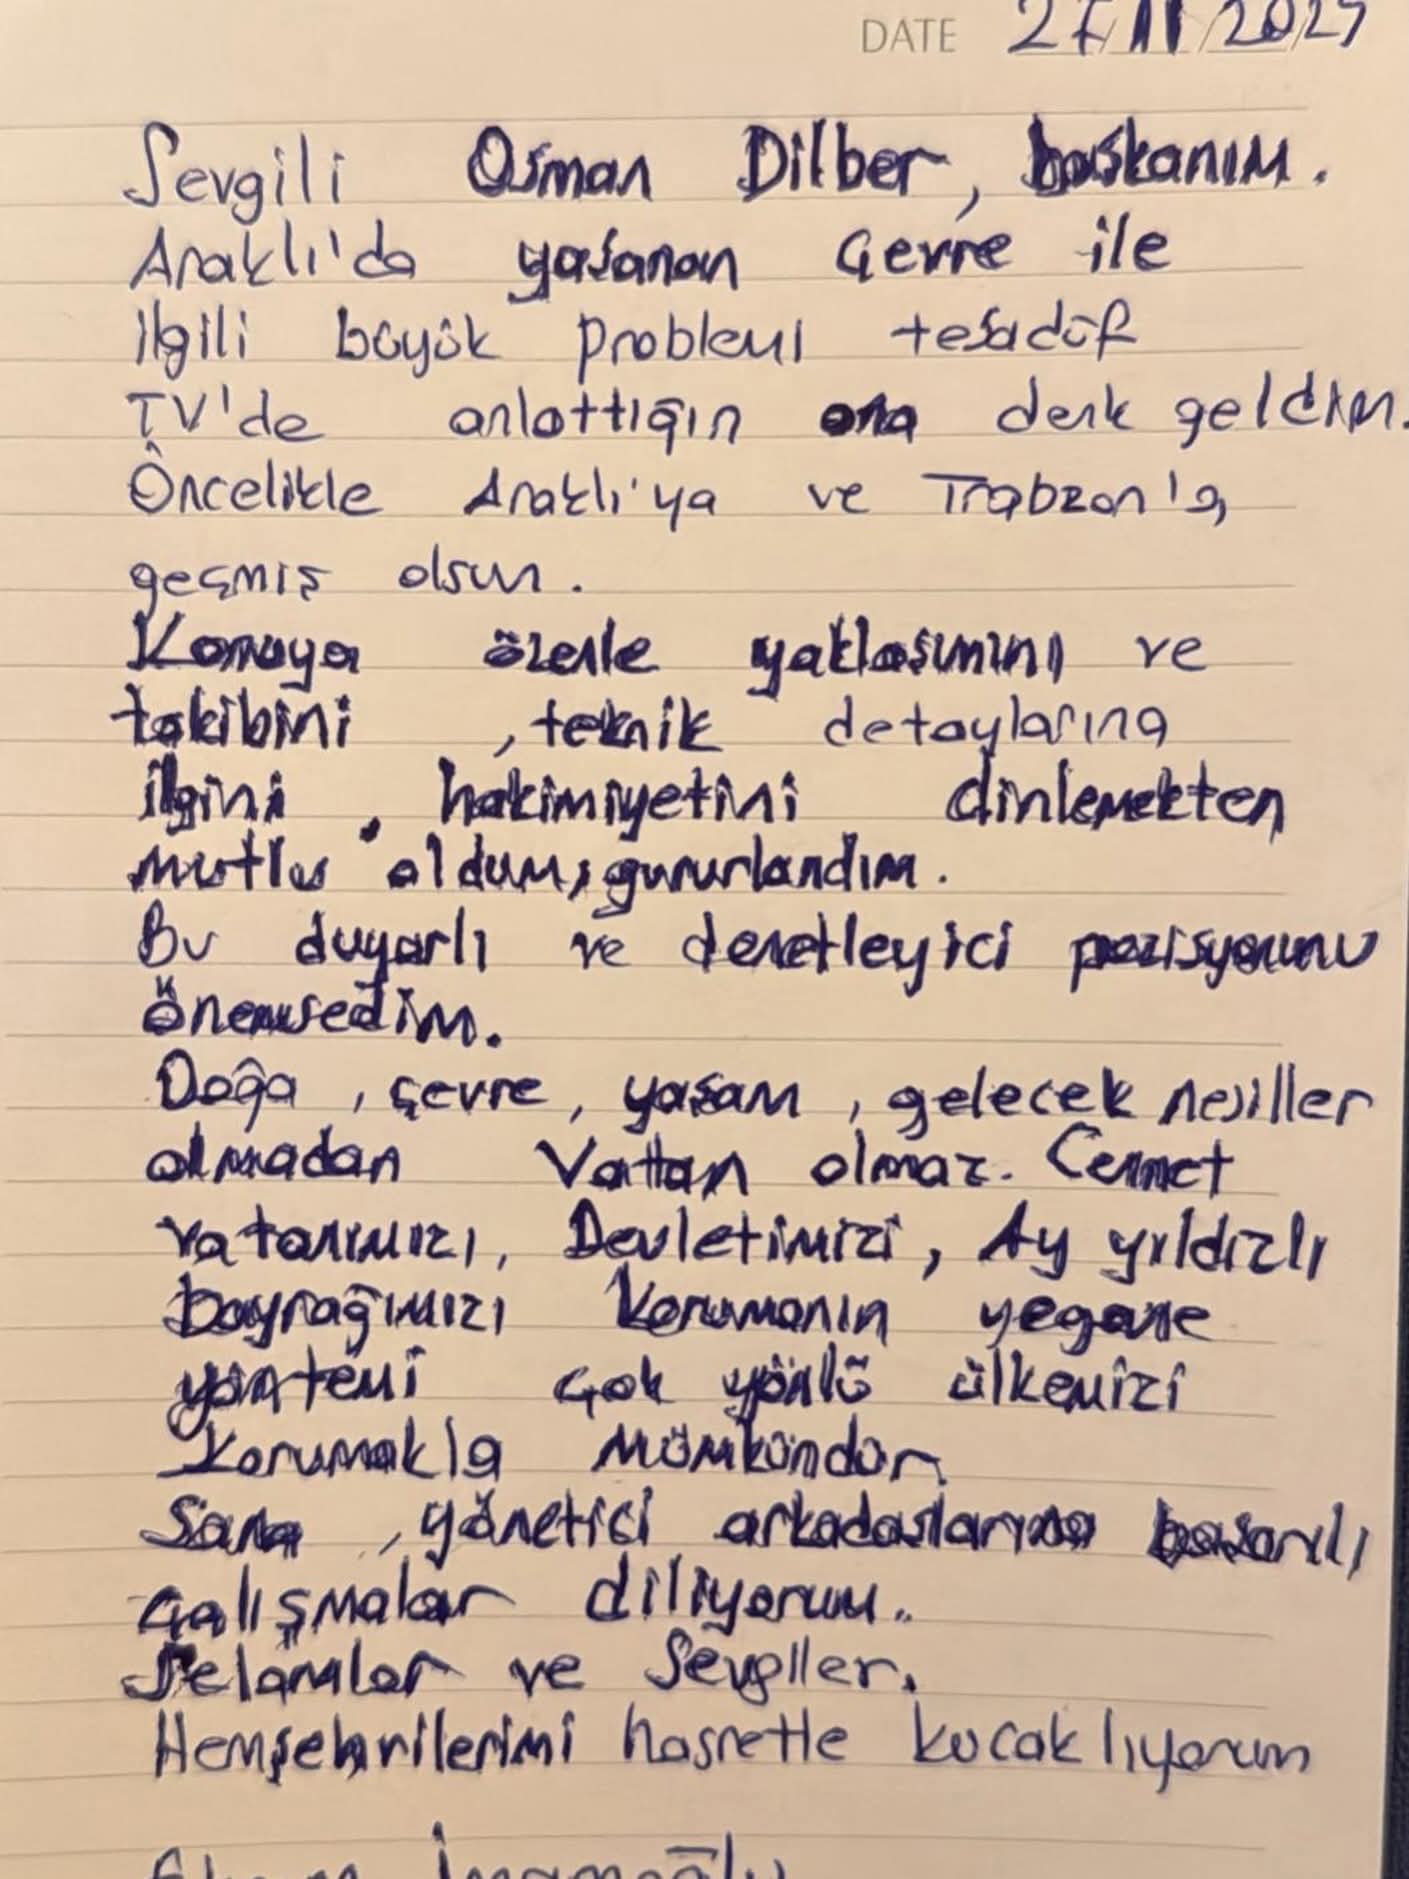 DATE 27/11/2025
Sevgili Osman Dilber, başkanım.
Araklı'da yaşanan Çevre ile
ilgili büyük problemi tesadüf
TV'de anlattığın ana denk geldim.
Öncelikle Araklı'ya ve Trabzon'a,
geçmiş olsun.
Konuya özenle yaklaşımını ve
takibini, teknik detaylarına
ilgini, hakimiyetini dinlemekten
mutlu oldum, gururlandım.
Bu duyarlı ve denetleyici pozisyonunu
önemsedim.
Doğa, çevre, yaşam, gelecek nesiller
olmadan Vatan olmaz. Cennet
vatanımızı, Devletimizi, Ay yıldızlı
bayrağımızı korumanın yegane
yöntemi çok yönlü ülkemizi
Korumakla mümkündür.
Sana, yönetici arkadaşlarına başarılı
çalışmalar diliyorum..
Selamlar ve Sevgiler.
Hemşehrilerimi hasretle kucaklıyorum
Ekrem İmamoğlu